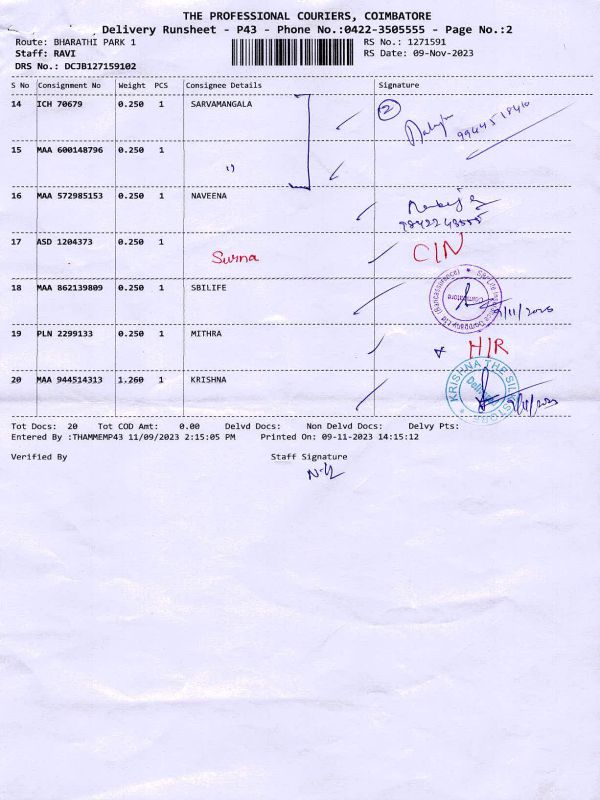 THE PROFESSIONAL COURIERS, COIMBATORE
Delivery Runsheet - P43 - Phone No.:0422-3505555 - Page No.:2
Route: BHARATHI PARK 1
RS No.: 1271591
Staff: RAVI
RS Date: 09-Nov-2023
DRS No.: DCJB127159102
S No Consignment No Weight PCS Consignee Details Signature
14 ICH 70679 0.250 1 SARVAMANGALA
2
9944518410
15 MAA 600148796 0.250 1
16 MAA 572985153 0.250 1 NAVEENA
17 ASD 1204373 0.250 1 Surna C/N
18 MAA 862139809 0.250 1 SBILIFE
9/11/2023
19 PLN 2299133 0.250 1 MITHRA H/R
20 MAA 944514313 1.260 1 KRISHNA
KRISHNA THE SILK
Tot Docs: 20 Tot COD Amt: 0.00 Delvd Docs: Non Delvd Docs: Delvy Pts:
Entered By :THAMMEMP43 11/09/2023 2:15:05 PM Printed On: 09-11-2023 14:15:12
Verified By Staff Signature